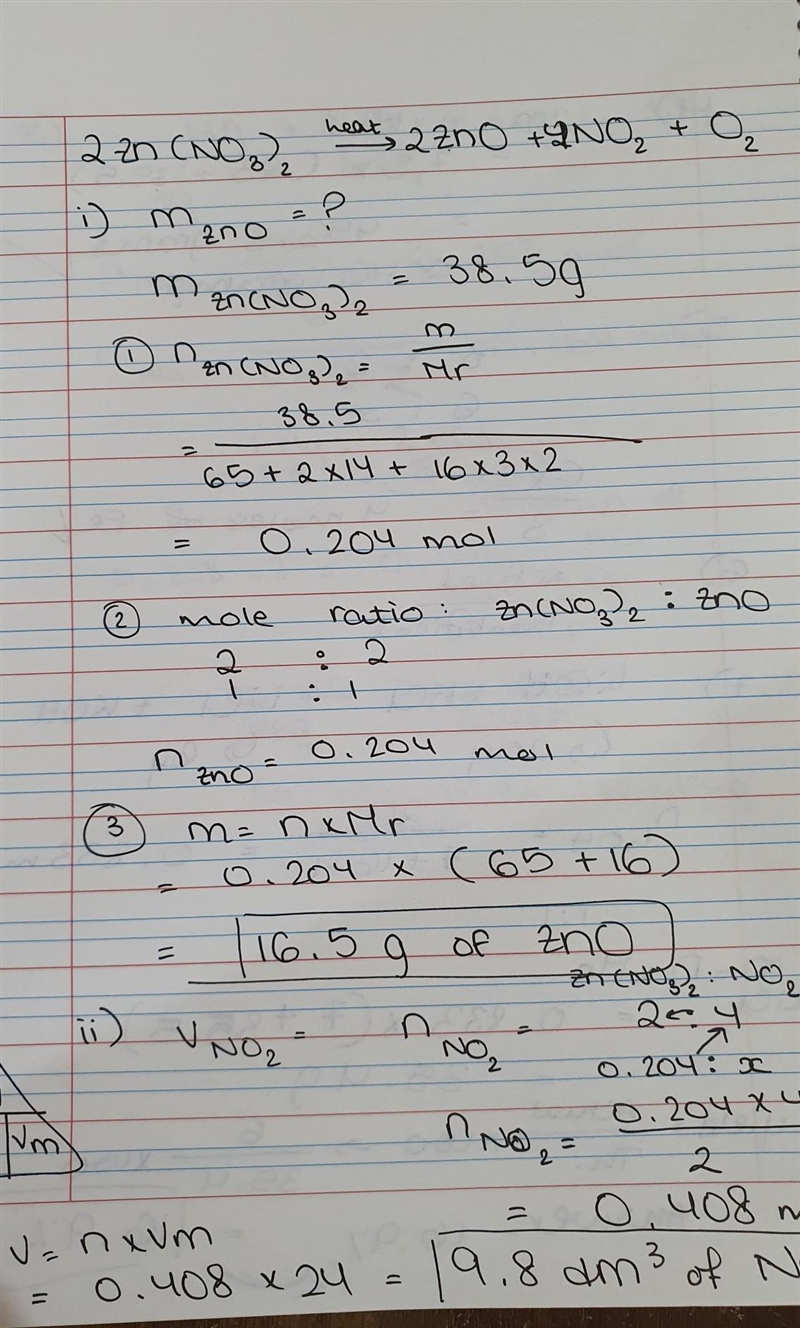 2Zn(NO₃)₂ heat→ 2ZnO + 4NO₂ + O₂
i) m ZnO = ?
m Zn(NO₃)₂ = 38.5g
① n Zn(NO₃)₂ = m/Mr
= 38.5 / 65 + 2×14 + 16×3×2
= 0.204 mol
② mole ratio: Zn(NO₃)₂ : ZnO
2 : 2
1 : 1
n ZnO = 0.204 mol
③ m = n×Mr
= 0.204 × (65 + 16)
= 16.5 g of ZnO
Zn(NO₃)₂ : NO₂
ii) V NO₂ = n NO₂ = 2 : 4
0.204 : x
n NO₂ = 0.204 × 4 / 2
= 0.408
Vm
V = n×Vm
= 0.408 × 24 = 9.8 dm³ of